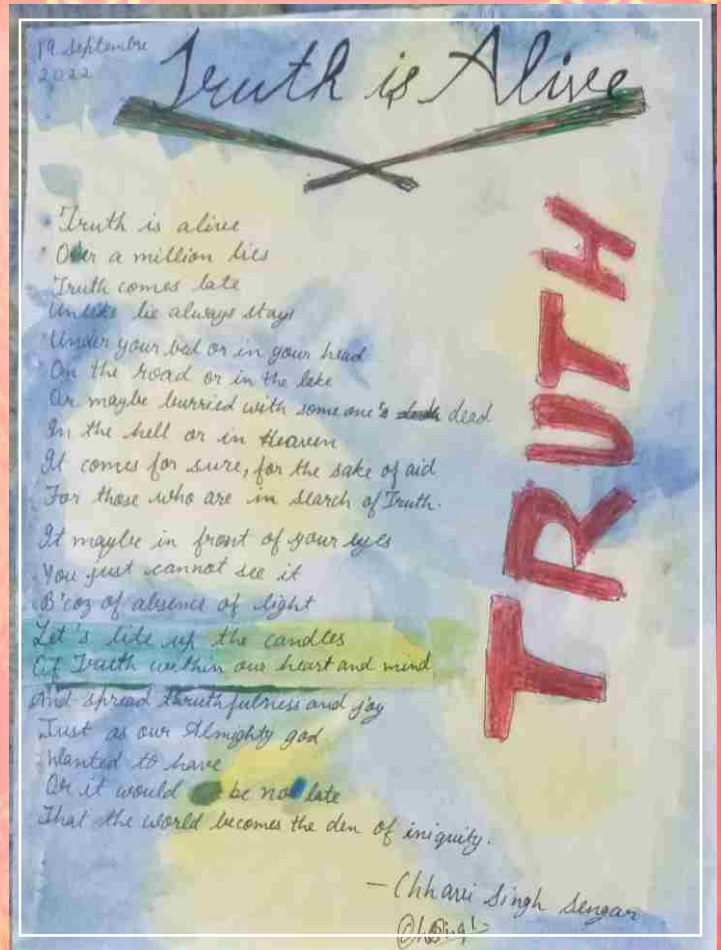 19 Septembre
2022
Truth is Alive
Truth is alive
Over a million lies
Truth comes late
Unlike lie always stays
Under your bed or in your head
On the road or in the lake
Or maybe burried with someone's dead
In the hell or in Heaven
It comes for sure, for the sake of aid
For those who are in search of Truth.
It maybe in front of your eyes
You just cannot see it
B'coz of absence of light
Let's lite up the candles
Of Truth within our heart and mind
And spread thruthfulness and joy
Just as our Almighty god
Wanted to have
Or it would be not late
That the world becomes the den of iniquity.
- Chhavi Singh Sengar
TRUTH